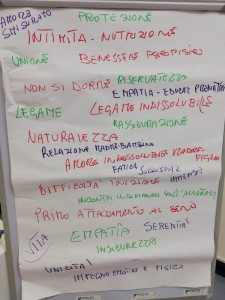 AMORE SMISURATO
PROTEZIONE
INTIMITÀ - NUTRIZIONE
UNIONE
BENESSERE PSICOFISICO
NON SI DORME
RISERVATEZZA
EMPATIA -
LEGAME
LEGAME INDISSOLUBILE
RASSICURAZIONE
NATURALEZZA
RELAZIONE MADRE-BAMBINO
AMORE INDISSOLUBILE MADRE FIGLIO
FATICA
DIFFICOLTÀ INIZIALE
INCONTRI
PRIMO ATTACCAMENTO AL SENO
VITA
EMPATIA
SERENITÀ
INSICUREZZA
UNICITÀ
IMPEGNO EMOTIVO E FISICO